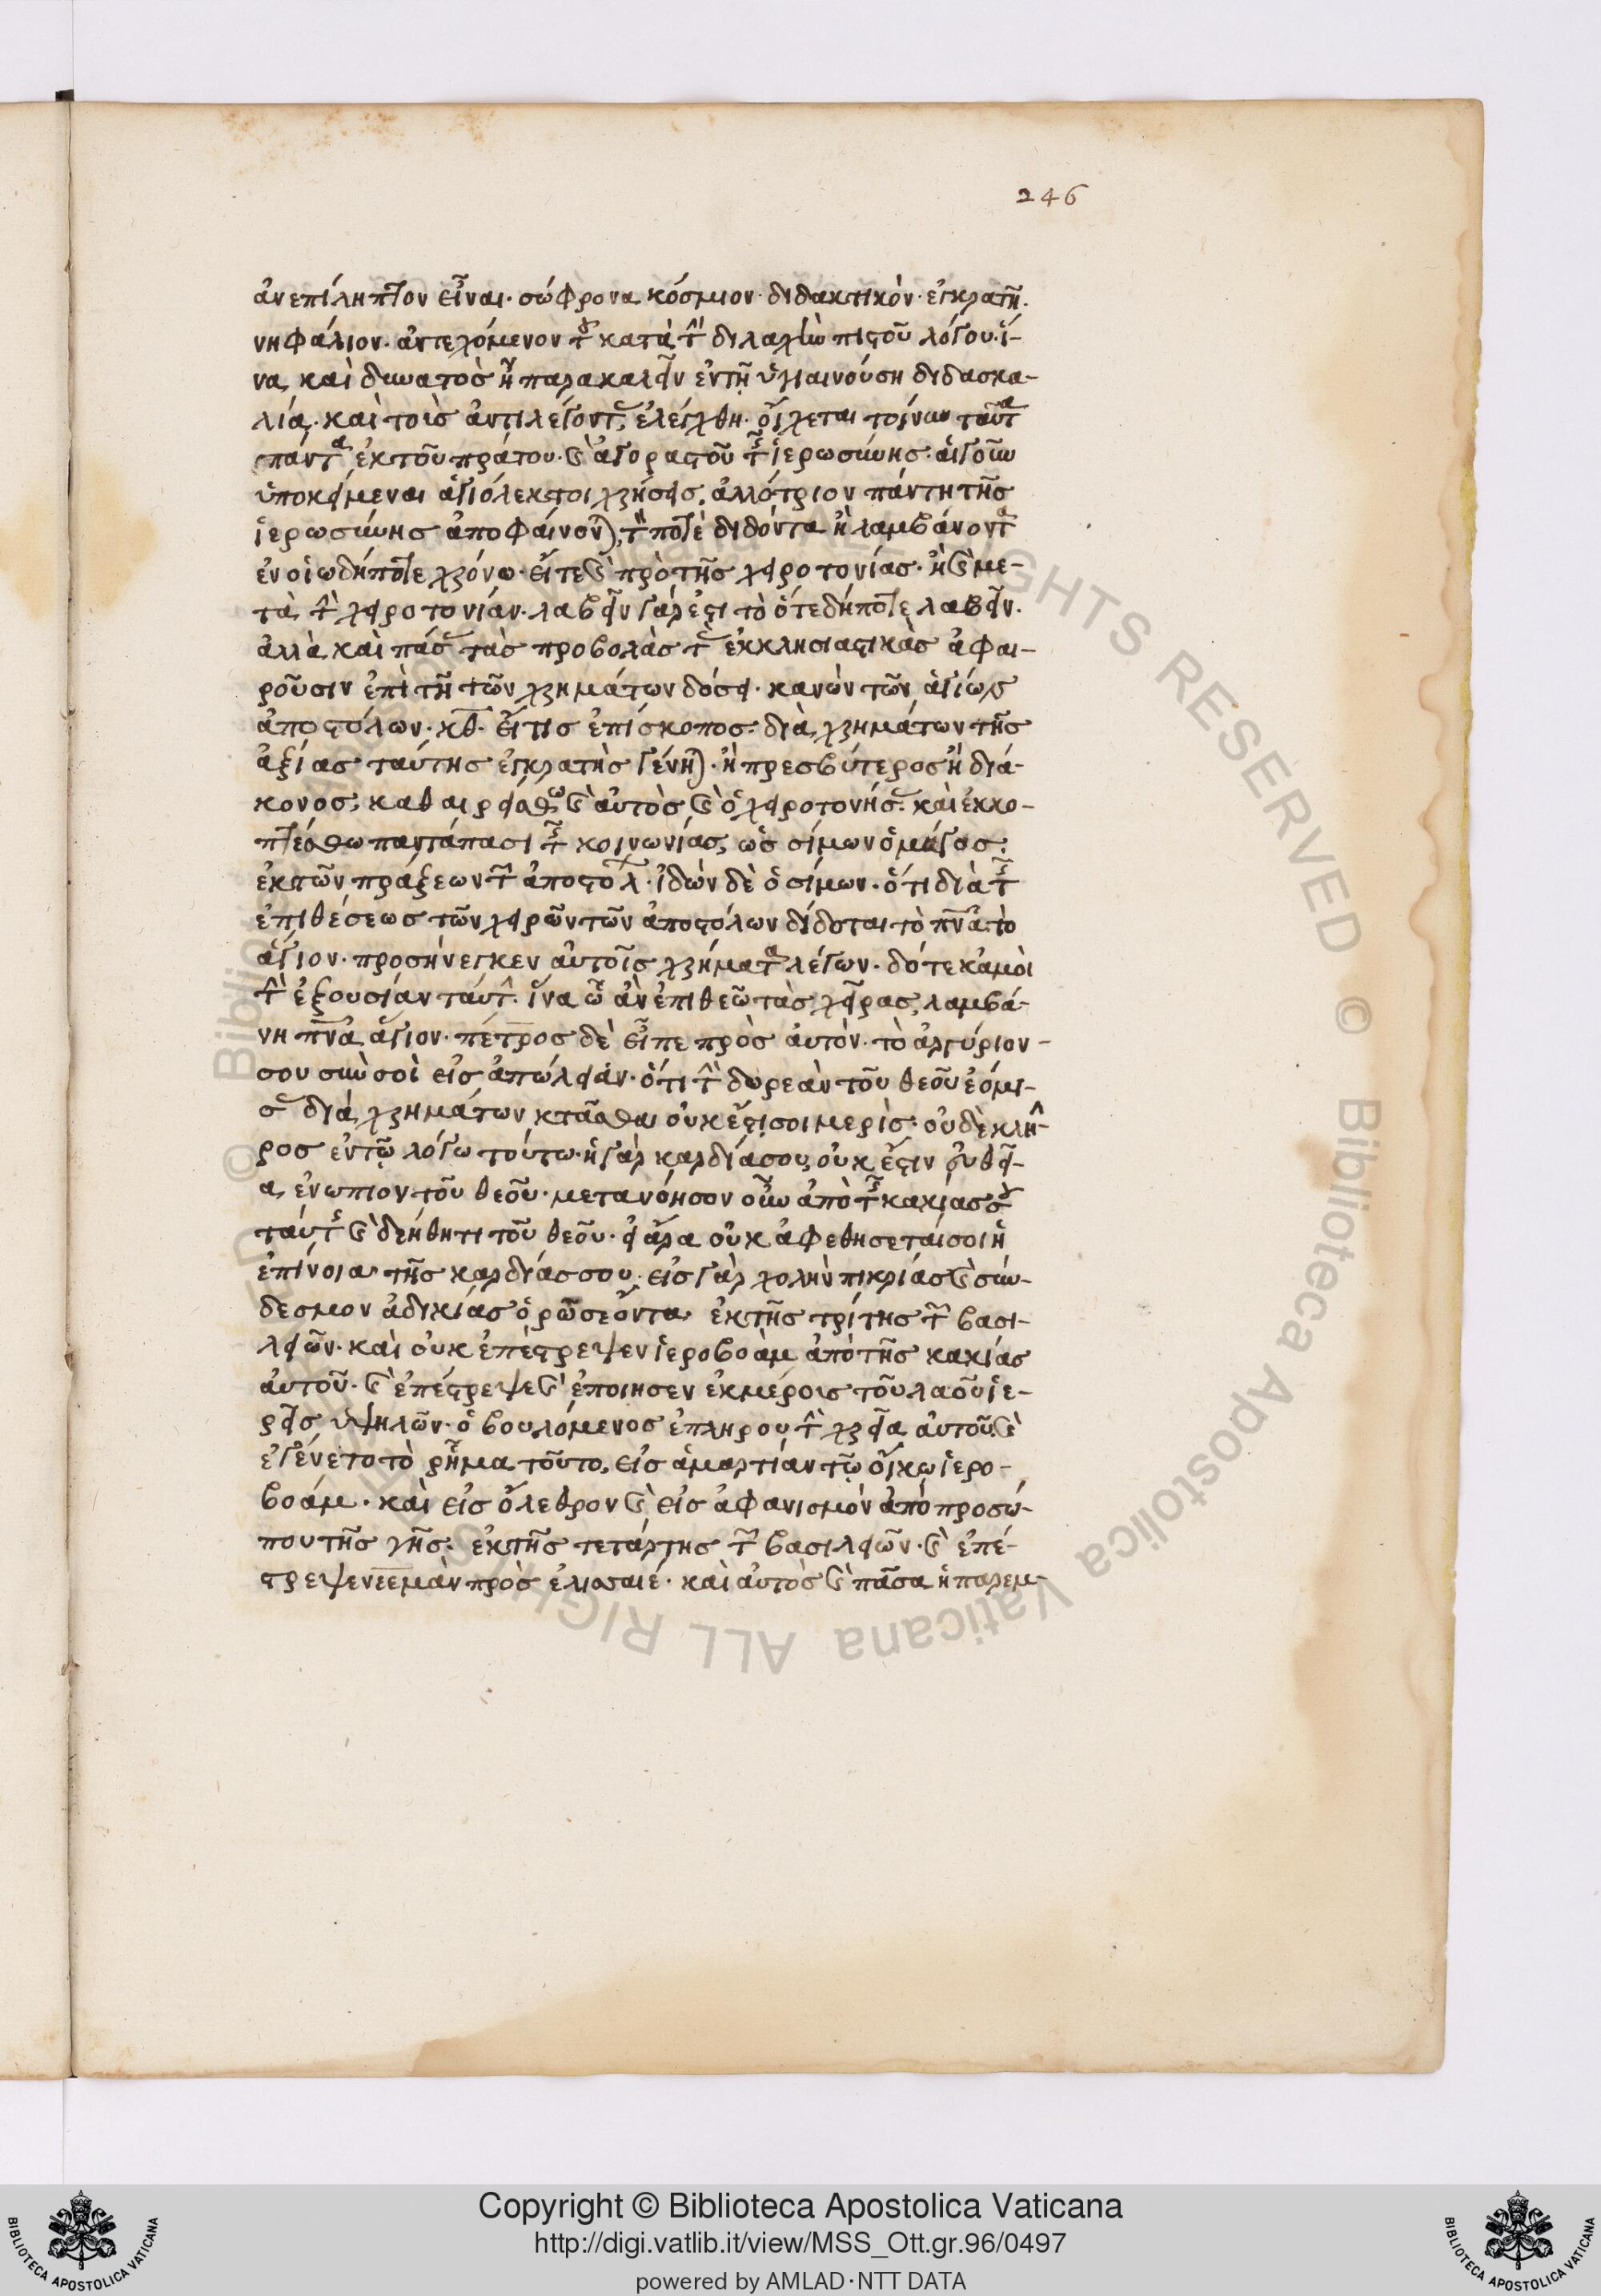 246
ἀνεπίληπτον εἶναι· σώφρονα κόσμιον· διδακτικὸν· ἐγκρατῆ·
νηφάλιον· ἀντεχόμενον τοῦ κατὰ τὴν διδαχὴν πιστοῦ λόγου· ἵ-
να καὶ δυνατὸς ἦ παρακαλεῖν ἐν τῆ ὑγιαινούση διδασκα-
λία· καὶ τοὺς ἀντιλέγοντας ἐλέγχειν· οἴχεται τοίνυν ταῦτα
πάντα ἐκ τοῦ πράτου· καὶ ἀγοραστοῦ τῆς ἱερωσύνης· αἱ γοῦν
ὑποκείμεναι ἁγιόλεκτοι χρήσεις, ἀλλότριον πάντη τῆς
ἱερωσύνης ἀποφαίνονται, τὸν ποτὲ διδόντα ἢ λαμβάνοντα
ἐν οἱωδήποτε χρόνω· εἴτε καὶ πρὸ τῆς χειροτονίας· ἢ καὶ με-
τὰ τὴν χειροτονίαν· λαβεῖν γάρ ἐστι τὸ ὁτεδήποτε λαβεῖν·
ἀλλὰ καὶ πάσας τὰς προβολὰς τὰς ἐκκλησιαστικὰς ἀφαι-
ροῦσιν ἐπὶ τῆ τῶν χρημάτων δόσει· κανὼν τῶν ἁγίων
ἀποστόλων· κθ· εἴ τις ἐπίσκοπος· διὰ χρημάτων τῆς
ἀξίας ταύτης ἐγκρατὴς γένηται· ἢ πρεσβύτερος ἢ διά-
κονος, καθαιρείσθω καὶ αὐτὸς καὶ ὁ χειροτονήσας· καὶ ἐκκο-
πτέσθω παντάπασι τῆς κοινωνίας, ὡς σίμων ὁ μάγος·
ἐκ τῶν πράξεων τῶν ἀποστόλων· ἰδὼν δὲ ὁ σίμων· ὅτι διὰ τῆς
ἐπιθέσεως τῶν χειρῶν τῶν ἀποστόλων δίδοται τὸ πνᾶ τὸ
ἅγιον· προσήνεγκεν αὐτοῖς χρήματα λέγων· δότε κἀμοὶ
τὴν ἐξουσίαν ταύτην· ἵνα ὧ ἂν ἐπιθεῶ τὰς χεῖρας, λαμβά-
νη πνᾶ ἅγιον· πέτρος δὲ εἶπε πρὸς αὐτὸν· τὸ ἀργύριον
σου σὺν σοὶ εἰς ἀπώλειαν· ὅτι τὴν δωρεὰν τοῦ θεοῦ ἐνόμι-
σας διὰ χρημάτων κτᾶσθαι οὐκ ἔστι σοι μερὶς· οὐδὲ κλῆ-
ρος ἐν τῶ λόγω τούτω· ἡ γὰρ καρδία σου, οὐκ ἔστιν εὐθεῖ-
α ἐνώπιον τοῦ θεοῦ· μετανόησον οὖν ἀπὸ τῆς κακίας σου
ταύτης καὶ δεήθητι τοῦ θεοῦ· εἰ ἄρα οὐκ ἀφεθήσεταί σοι ἡ
ἐπίνοια τῆς καρδίας σου· εἰς γὰρ χολὴν πικρίας καὶ σύν-
δεσμον ἀδικίας ὁρῶ σε ὄντα· ἐκ τῆς τρίτης τῶν βασι-
λειῶν· καὶ οὐκ ἐπέστρεψεν ἱεροβοὰμ ἀπὸ τῆς κακίας
αὐτοῦ· καὶ ἐπέστρεψε καὶ ἐποίησεν ἐκ μέρους τοῦ λαοῦ ἱε-
ρεῖς ὑψηλῶν· ὁ βουλόμενος ἐπλήρου τὴν χεῖρα αὐτοῦ, καὶ
ἐγένετο τὸ ρῆμα τοῦτο, εἰς ἁμαρτίαν τῶ οἴκω ἱερο-
βοάμ· καὶ εἰς ὄλεθρον καὶ εἰς ἀφανισμὸν ἀπὸ προσώ-
που τῆς γῆς· ἐκ τῆς τετάρτης τῶν βασιλειῶν· καὶ ἐπέ-
στρεψεν νεεμὰν πρὸς ἐλισσαιέ· καὶ αὐτὸς καὶ πᾶσα ἡ παρεμ-
Copyright © Biblioteca Apostolica Vaticana
http://digi.vatlib.it/view/MSS_Ott.gr.96/0497
powered by AMLAD·NTT DATA
BIBLIOTECA APOSTOLICA VATICANA
BIBLIOTECA APOSTOLICA VATICANA